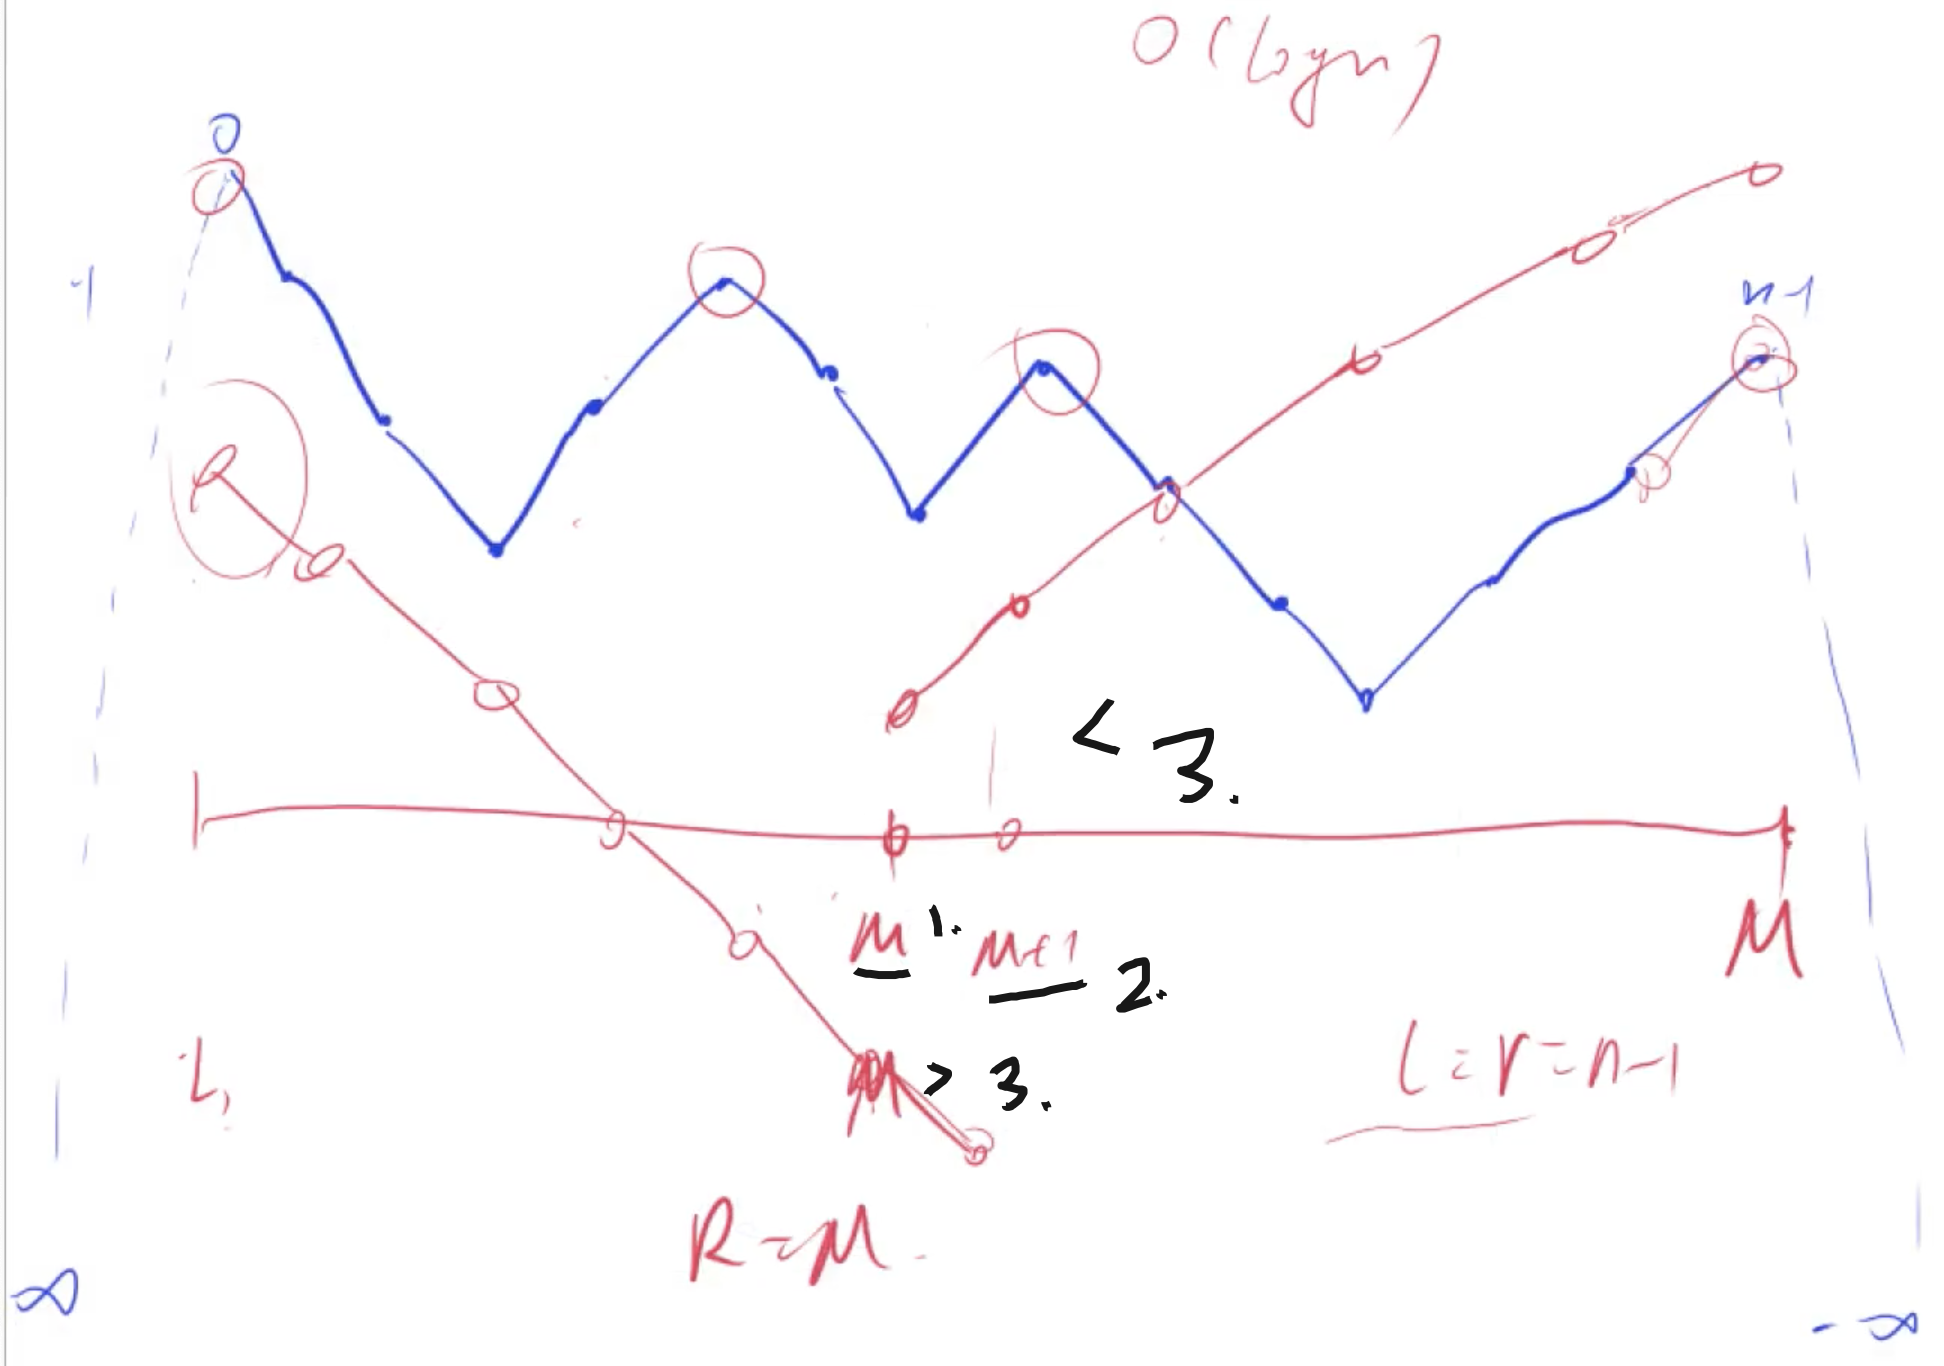 O(logn)
0
-1
n-1
< 3.
M 1. M+1 2.
M
L,
M > 3.
l=r=n-1
R=M.
∞
-∞